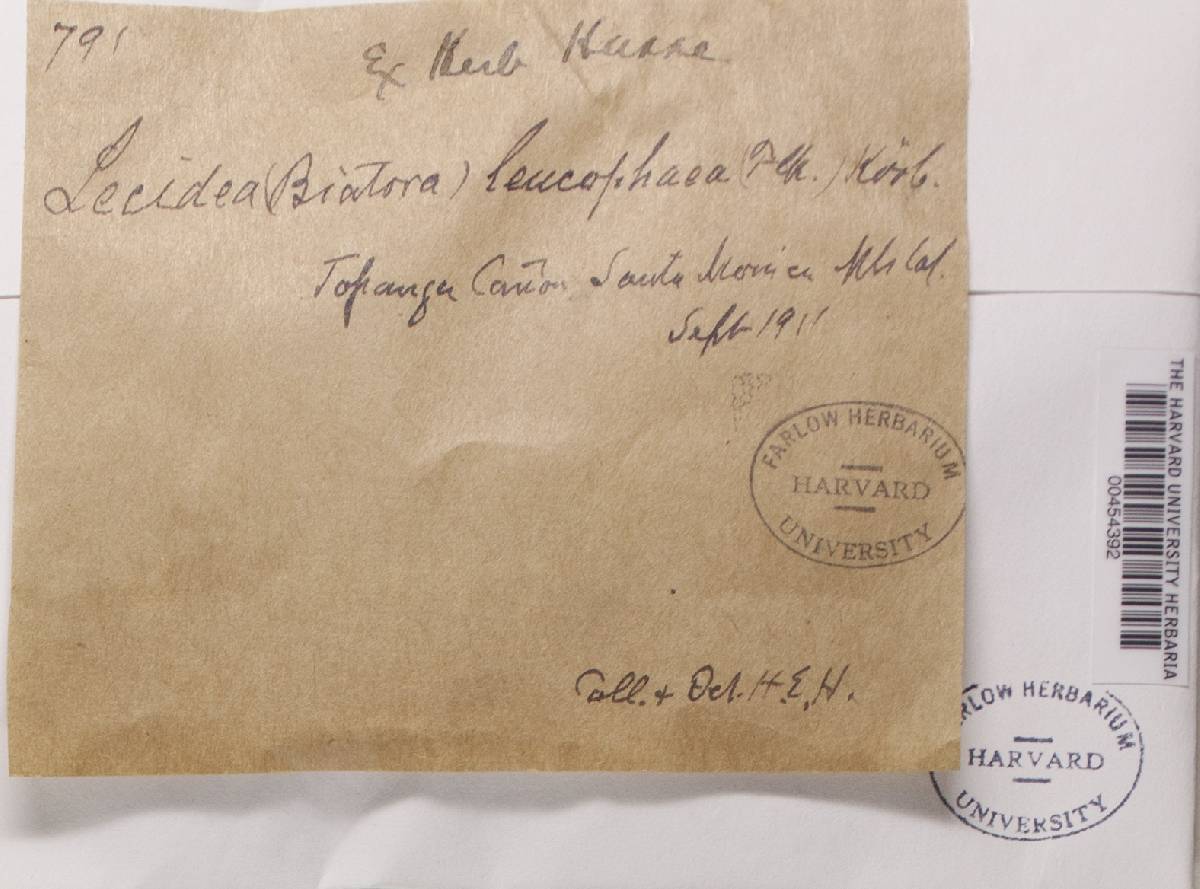 791
Ex Herb Hasse
Lecidea (Biatora) leucophaea (Flk.) Körb.
Topanga Cañon Santa Monica Mts Cal.
Sept 1911
FARLOW HERBARIUM
HARVARD
UNIVERSITY
Coll. + Det. H.E.H.
THE HARVARD UNIVERSITY HERBARIA
00454392
RLOW HERBARIUM
HARVARD
UNIVERSITY